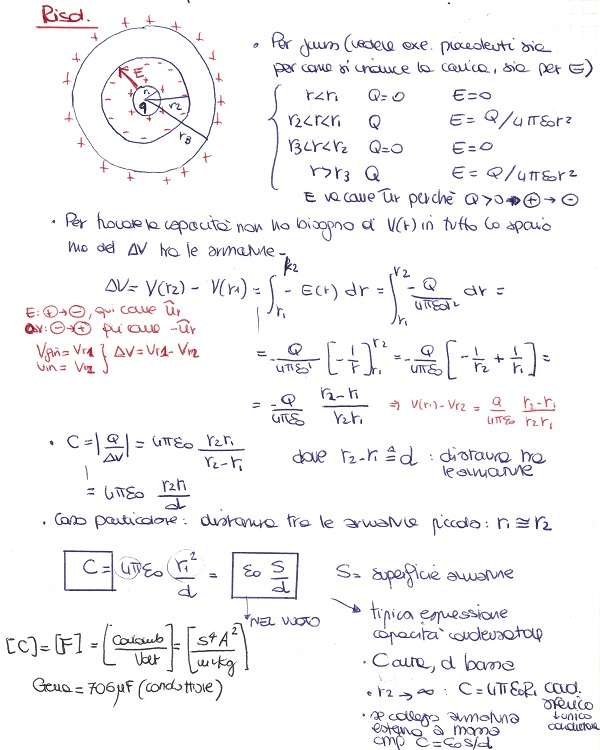 Risol.
• Per Gauss (vedere exe. precedenti sia
per come si induce la carica, sia per E)
r<r1 Q=0 E=0
r2<r<r1 Q E= Q/4πε0r²
r3<r<r2 Q=0 E=0
r>r3 Q E= Q/4πε0r²
E va come ûr perché Q>0 ⊕→⊖
E
r1
r2
r3
q
• Per trovare la capacità non ho bisogno di V(r) in tutto lo spazio
ma del ΔV tra le armature -
ΔV= V(r2) - V(r1) = ∫r1^r2 - E(r) dr = ∫r1^r2 -Q/4πε0r² dr =
E: ⊕→⊖, qui come ûr
ΔV: ⊖→⊕ qui come -ûr
Vfin = Vr1
Vin = Vr2 } ΔV=Vr1-Vr2
= -Q/4πε0 [-1/r]r1^r2 = -Q/4πε0 [-1/r2 + 1/r1] =
= -Q/4πε0 r2-r1/r2r1 ⇒ V(r1)-Vr2 = Q/4πε0 r2-r1/r2r1
• C=|Q/ΔV| = 4πε0 r2r1/r2-r1 dove r2-r1 ≜ d : distanza tra
le armature
= 4πε0 r2r1/d
• Caso particolare: distanza tra le armature piccola: r1≅r2
C= 4πε0 r1²/d = ε0 S/d S= superficie armature
NEL VUOTO
tipica espressione
capacità condensatore
[C]=[F]= [Coulomb/Volt] = [s⁴A²/m²kg]
Cterra = 706μF (conduttore)
• C aum, d bassa
• r2→∞ : C=4πε0R1 cond.
sferico
unico
conduttore
• se collego armatura
esterna a massa
cmq C=ε0S/d